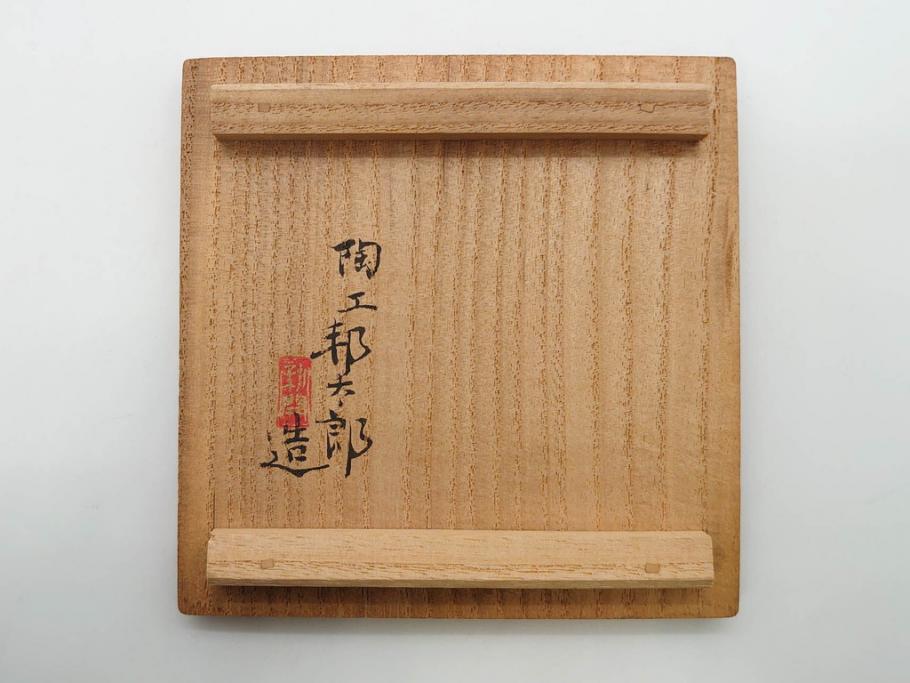 陶工邦太郎
造